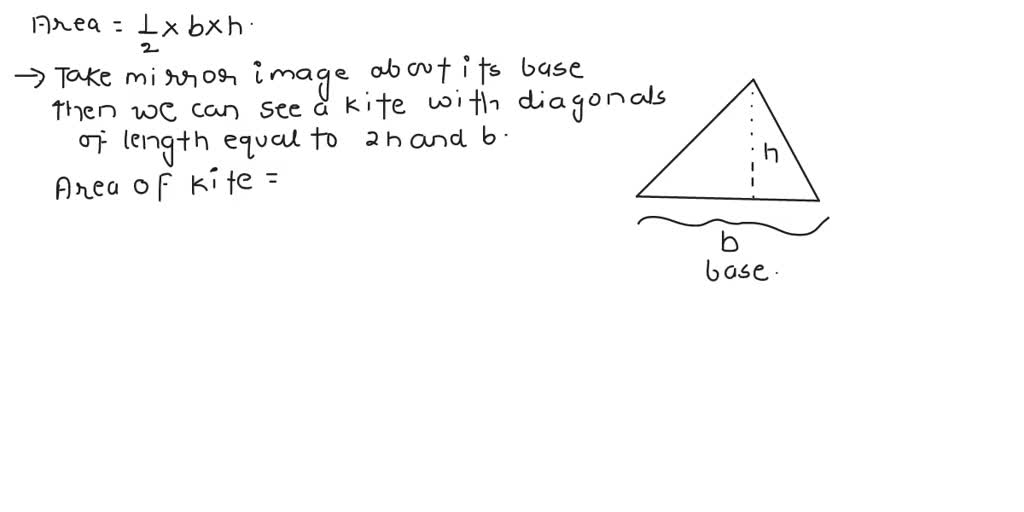 Area = 1/2 × b × h.
→ Take mirror image about its base
then we can see a kite with diagonals
of length equal to 2h and b.
Area of kite =
h
b
base.